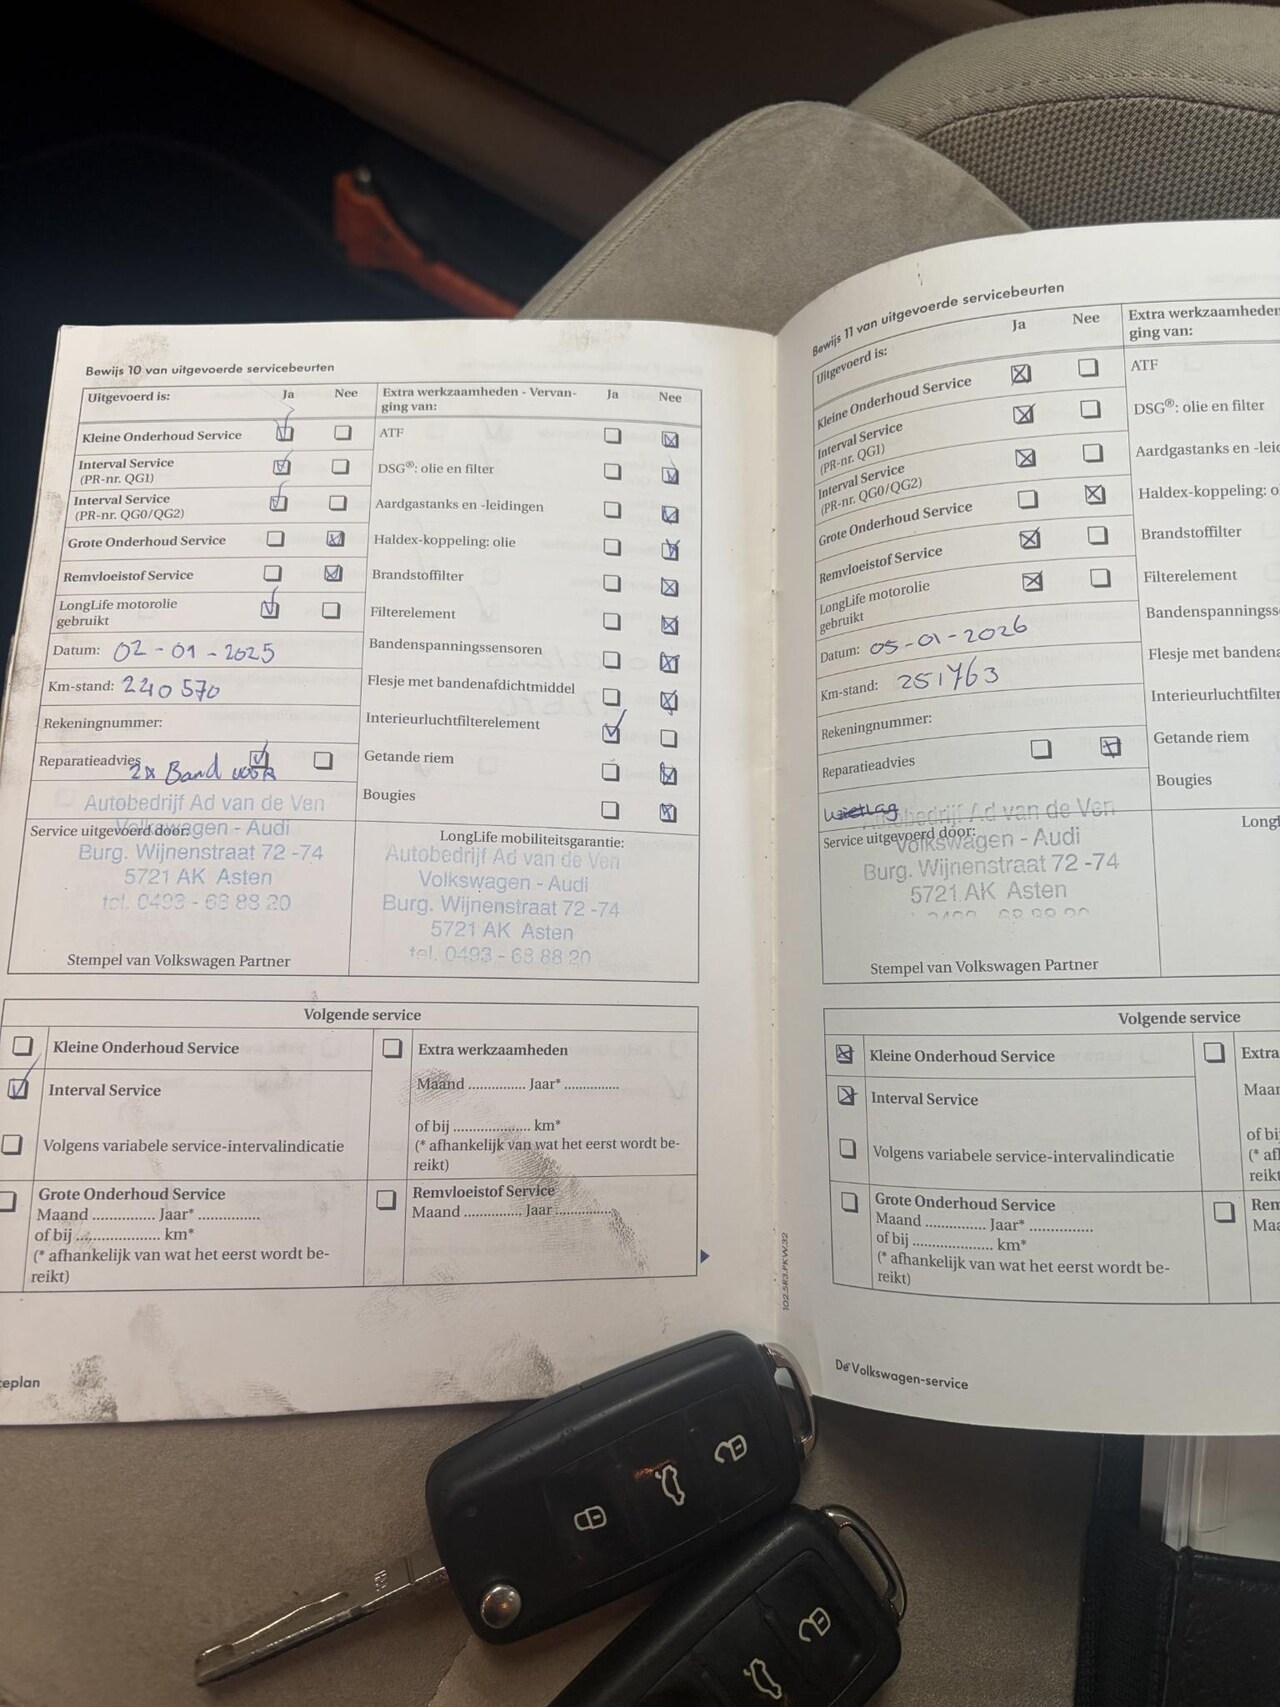 Bewijs 10 van uitgevoerde servicebeurten
Uitgevoerd is: Ja Nee
Kleine Onderhoud Service
Interval Service
(PR-nr. QG1)
Interval Service
(PR-nr. QG0/QG2)
Grote Onderhoud Service
Remvloeistof Service
LongLife motorolie
gebruikt
Datum: 02-01-2025
Km-stand: 220570
Rekeningnummer:
Reparatieadvies
2x Band voor
Extra werkzaamheden - Vervan-
ging van: Ja Nee
ATF
DSG®: olie en filter
Aardgastanks en -leidingen
Haldex-koppeling: olie
Brandstoffilter
Filterelement
Bandenspanningssensoren
Flesje met bandenafdichtmiddel
Interieurluchtfilterelement
Getande riem
Bougies
Autobedrijf Ad van de Ven
Volkswagen - Audi
Service uitgevoerd door:
Burg. Wijnenstraat 72 -74
5721 AK Asten
tel. 0493 - 68 88 20
Stempel van Volkswagen Partner
LongLife mobiliteitsgarantie:
Autobedrijf Ad van de Ven
Volkswagen - Audi
Burg. Wijnenstraat 72 -74
5721 AK Asten
tel. 0493 - 68 88 20
Volgende service
Kleine Onderhoud Service
Interval Service
Volgens variabele service-intervalindicatie
Grote Onderhoud Service
Maand ............... Jaar* ...............
of bij .................... km*
(* afhankelijk van wat het eerst wordt be-
reikt)
Extra werkzaamheden
Maand .............. Jaar* ..............
of bij ................... km*
(* afhankelijk van wat het eerst wordt be-
reikt)
Remvloeistof Service
Maand .............. Jaar ..............
eplan
Bewijs 11 van uitgevoerde servicebeurten
Uitgevoerd is: Ja Nee
Kleine Onderhoud Service
Interval Service
(PR-nr. QG1)
Interval Service
(PR-nr. QG0/QG2)
Grote Onderhoud Service
Remvloeistof Service
LongLife motorolie
gebruikt
Datum: 05-01-2026
Km-stand: 251763
Rekeningnummer:
Reparatieadvies
Extra werkzaamheden
ging van:
ATF
DSG®: olie en filter
Aardgastanks en -leid
Haldex-koppeling: o
Brandstoffilter
Filterelement
Bandenspanningss
Flesje met bandena
Interieurluchtfilter
Getande riem
Bougies
Autobedrijf Ad van de Ven
Service uitgevoerd door:
Volkswagen - Audi
Burg. Wijnenstraat 72 -74
5721 AK Asten
Stempel van Volkswagen Partner
Longl
Volgende service
Kleine Onderhoud Service
Interval Service
Volgens variabele service-intervalindicatie
Grote Onderhoud Service
Maand ............... Jaar* ...............
of bij .................... km*
(* afhankelijk van wat het eerst wordt be-
reikt)
Extra
Maan
of bij
(* afh
reikt
Rem
Maa
102.5R3.PKW.32
De Volkswagen-service